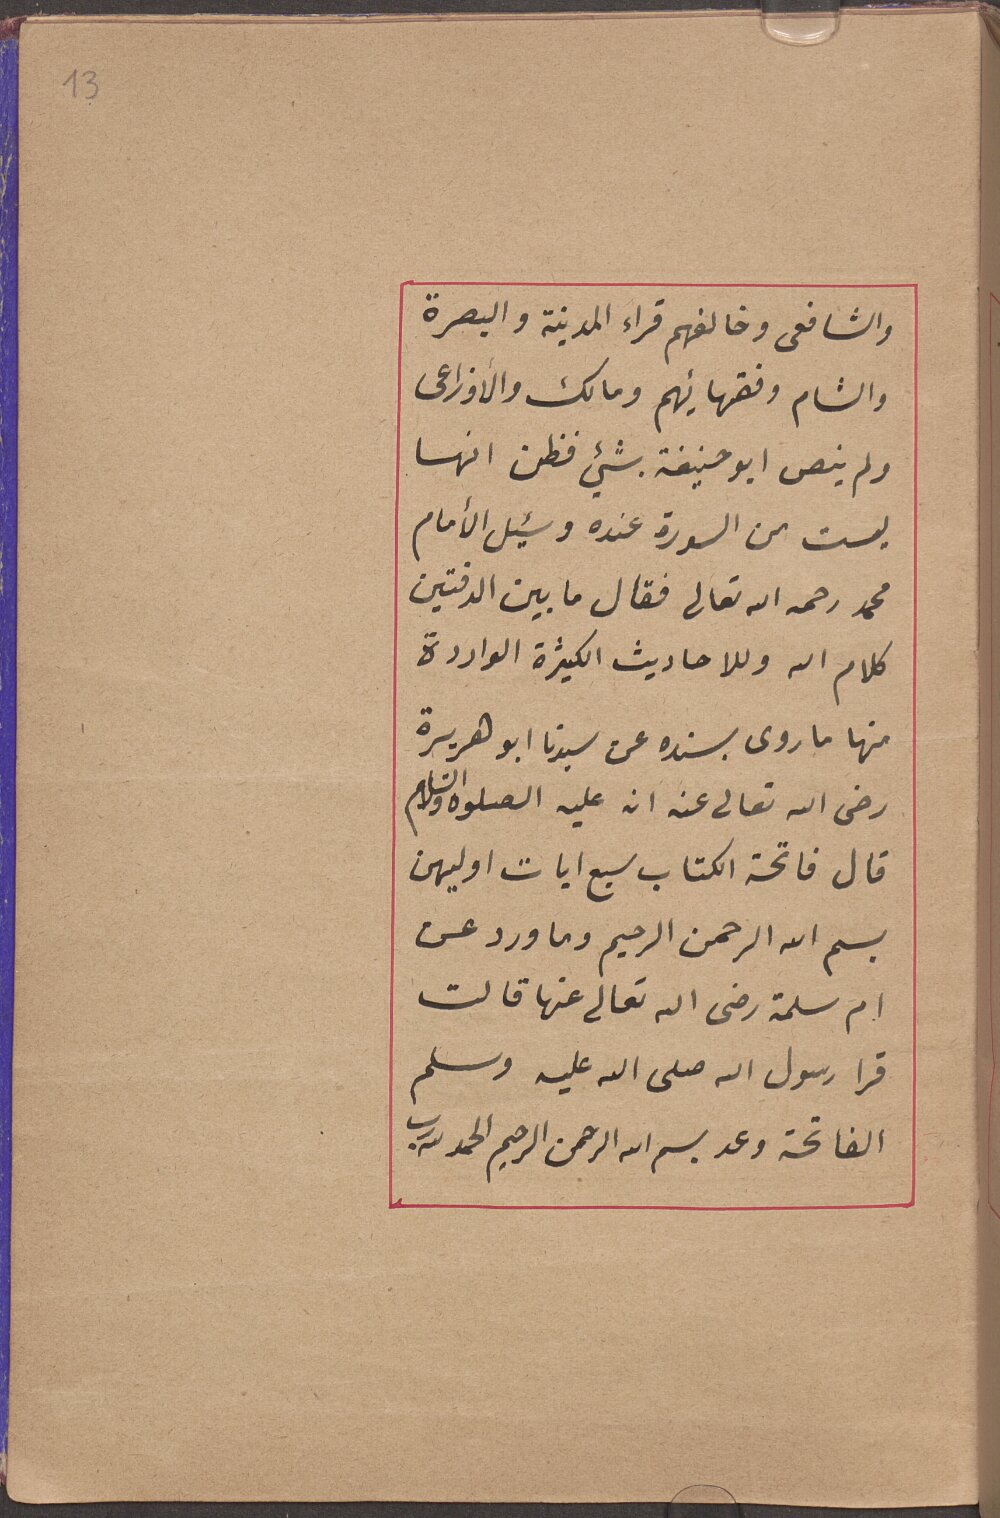 13
والشافعى وخالفهم قراء المدينة والبصرة
والشام وفقهائهم ومالك والأوزاعى
ولم ينص ابو حنيفة بشئ فظن انها
ليست من السورة عنده وسئيل الأمام
محمد رحمه الله تعالى فقال ما بين الدفتين
كلام الله وللاحاديث الكيثرة الواردة
منها ما روى بسنده عن سيدنا ابو هريرة
رضى الله تعالى عنه انه عليه الصلوه والسلام
قال فاتحة الكتاب سبع ايات اوليهن
بسم الله الرحمن الرحيم وما ورد عن
ام سلمة رضى الله تعالى عنها قالت
قرا رسول الله صلى الله عليه وسلم
الفاتحة وعد بسم الله الرحمن الرحيم الحمد لله رب